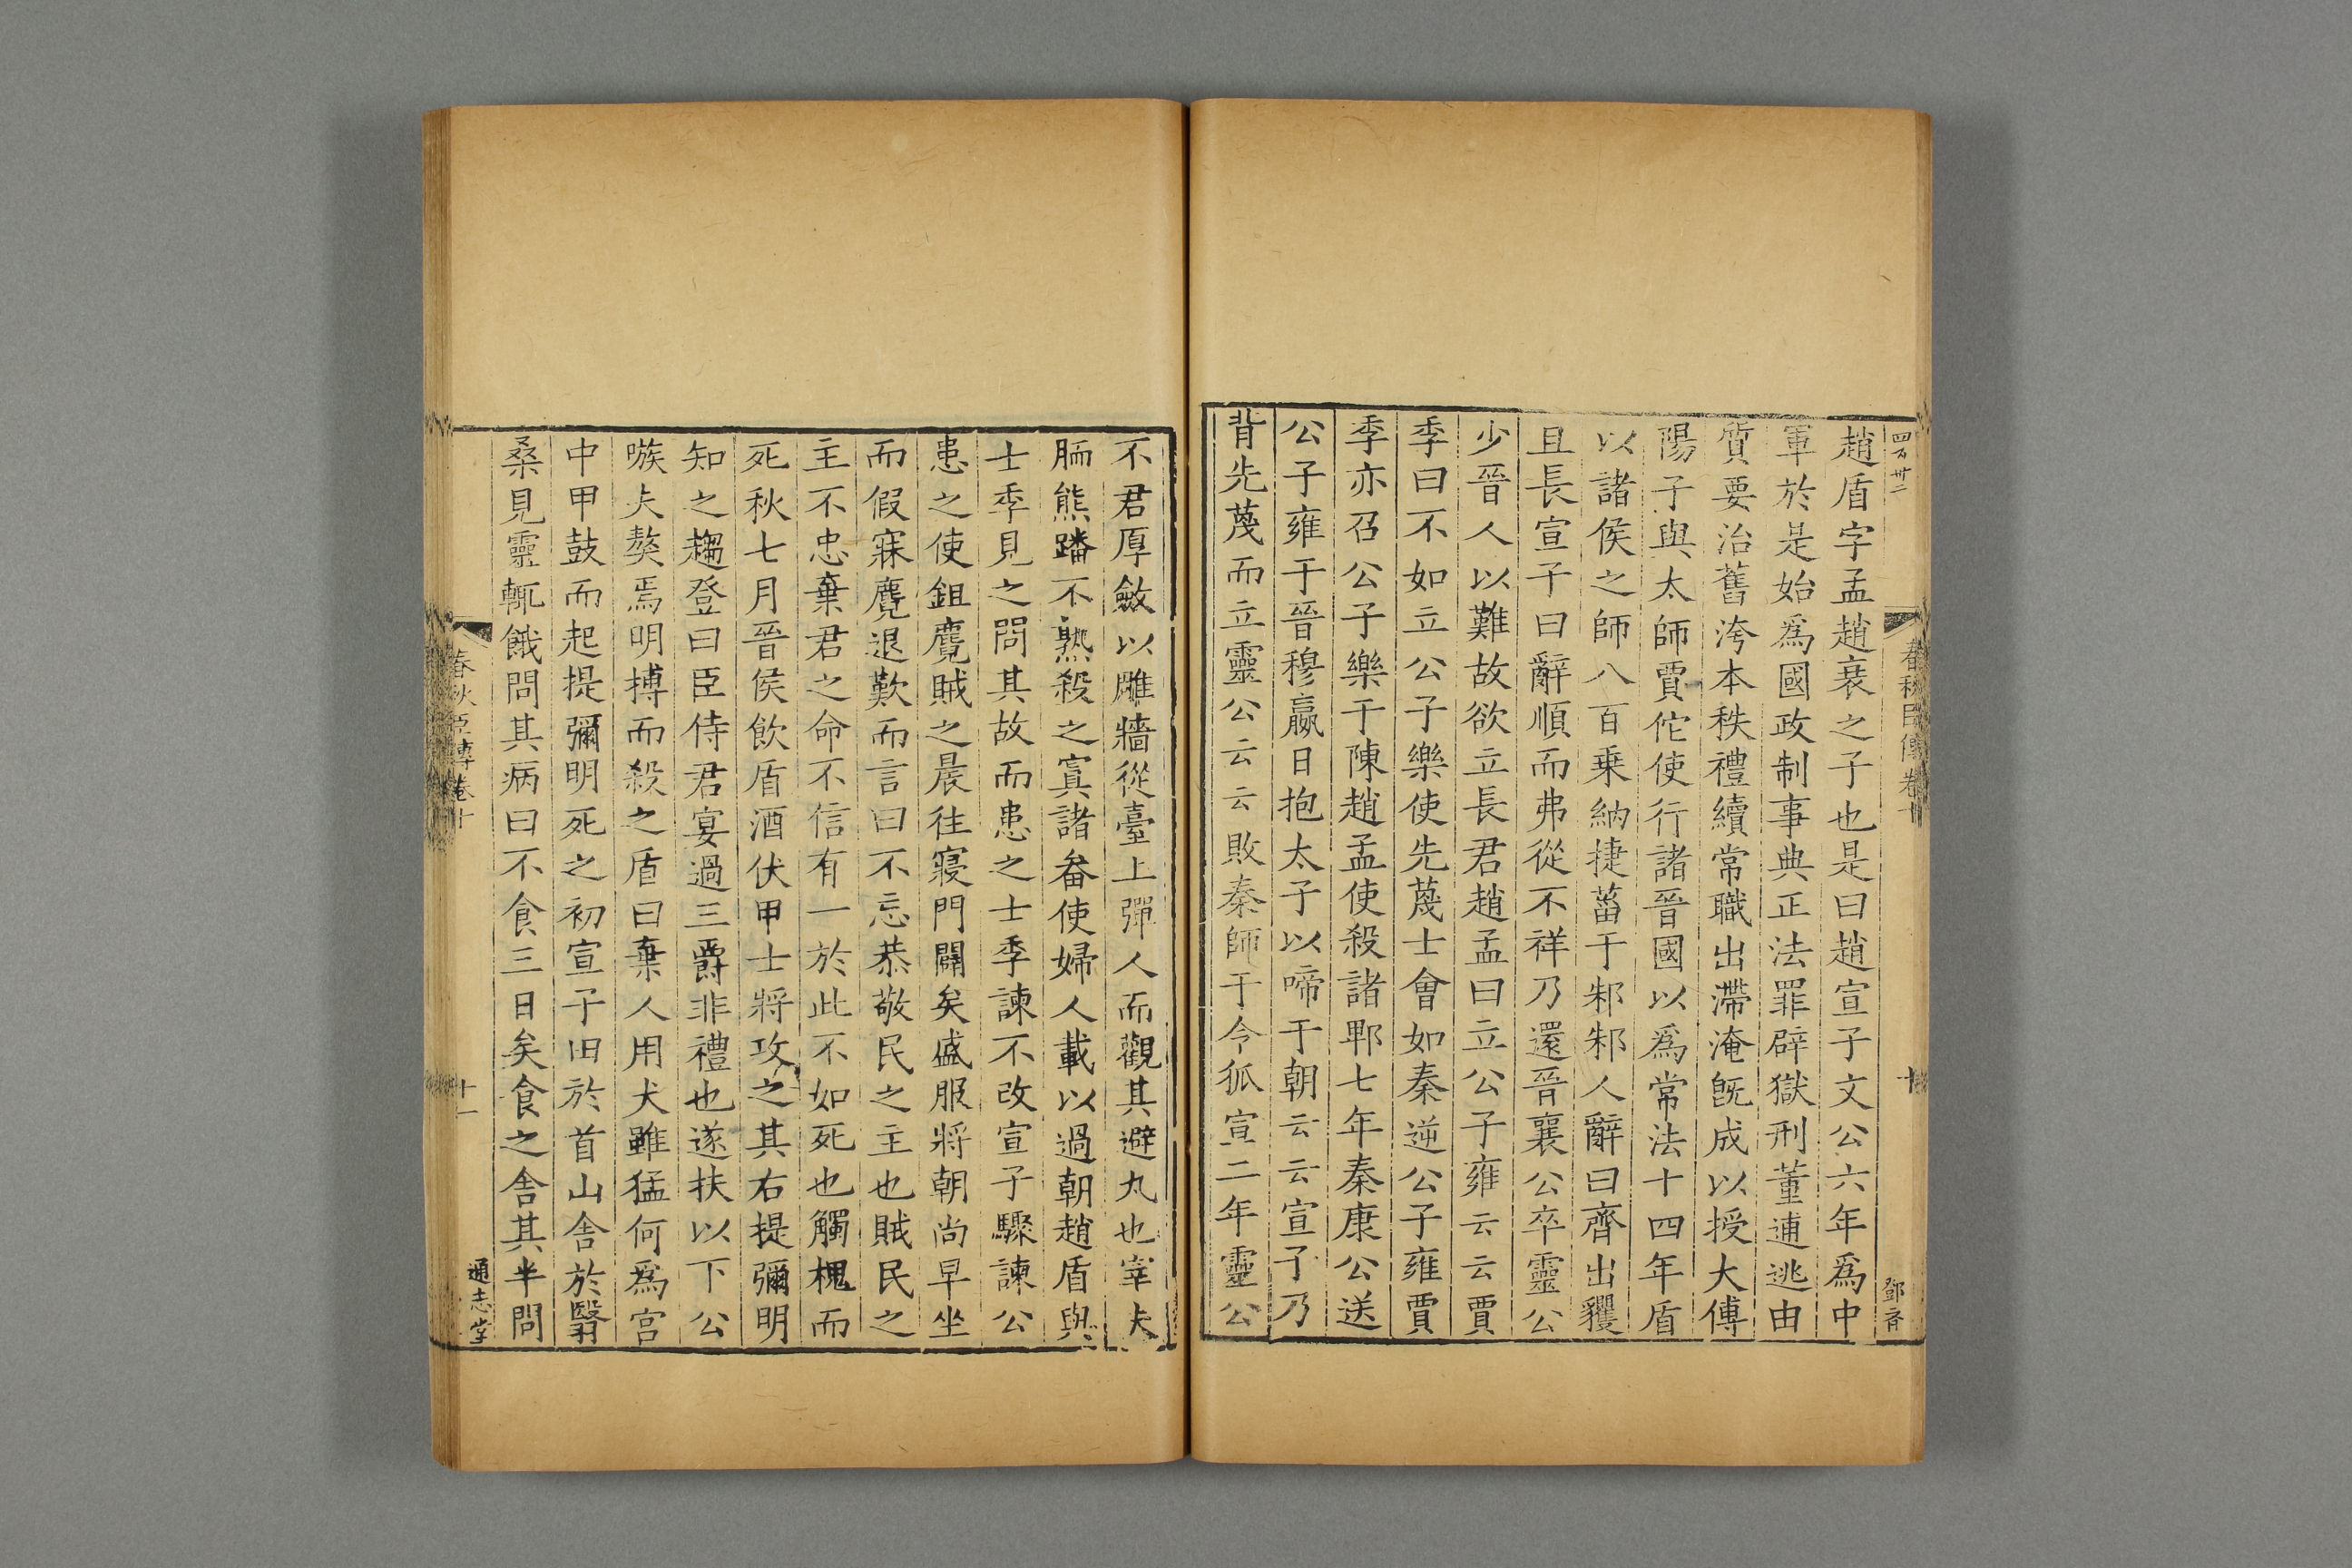 四百卅二
春秋臣傳卷十
十
鄧俞
趙盾字孟趙衰之子也是曰趙宣子文公六年爲中
軍於是始爲國政制事典正法罪辟獄刑董逋逃由
質要治舊洿本秩禮續常職出滯淹旣成以授大傅
陽子與太師賈佗使行諸晉國以爲常法十四年盾
以諸侯之師八百乗納捷菑于邾邾人辭曰齊出貜
且長宣子曰辭順而弗從不祥乃還晉襄公卒靈公
少晉人以難故欲立長君趙孟曰立公子雍云云賈
季曰不如立公子樂使先蔑士會如秦逆公子雍賈
季亦召公子樂于陳趙孟使殺諸郫七年秦康公送
公子雍于晉穆嬴日抱太子以啼于朝云云宣子乃
背先蔑而立靈公云云敗秦師于令狐宣二年靈公
不君厚斂以雕牆從臺上彈人而觀其避丸也宰夫
胹熊蹯不熟殺之寘諸畚使婦人載以過朝趙盾與
士季見之問其故而患之士季諫不改宣子驟諫公
患之使鉏麑賊之晨往寢門闢矣盛服將朝尚早坐
而假寐麑退歎而言曰不忘恭敬民之主也賊民之
主不忠棄君之命不信有一於此不如死也觸槐而
死秋七月晉侯飲盾酒伏甲士將攻之其右提彌明
知之趨登曰臣侍君宴過三爵非禮也遂扶以下公
嗾夫獒焉明搏而殺之盾曰棄人用犬雖猛何爲宫
中甲鼓而起提彌明死之初宣子田於首山舍於翳
桑見靈輒餓問其病曰不食三日矣食之舍其半問
春秋臣傳卷十
十一
通志堂